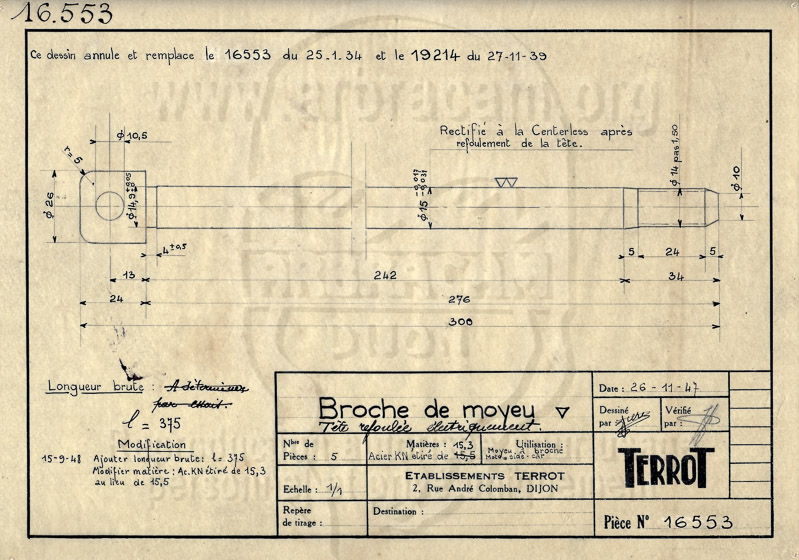 16.553
Ce dessin annule et remplace le 16553 du 25.1.34 et le 19214 du 27-11-39
φ 10,5
r=5
φ 26
φ 14,9 ±0,05
4 ±0,5
Rectifié à la Centerless après
refoulement de la tête.
φ 15 -0,017 -0,031
φ 14 pas 1,50
φ 10
13
242
5
24
5
34
24
276
300
Longueur brute : A déterminer
par essait.
l = 375
Modification
15-9-48 Ajouter longueur brute: l = 375
Modifier matière: Ac. KN étiré de 15,3
au lieu de 15,5
Broche de moyeu
Tête refoulée électriquement.
Nbre de
Pièces : 5
Matières : 15,3
Acier KN étiré de 15,5
Utilisation :
Moyeu à broche
Moto side-car
Echelle : 1/1
ETABLISSEMENTS TERROT
2, Rue André Colomban, DIJON
Repère
de tirage :
Destination :
Date : 26-11-47
Dessiné
par
Vérifié
par :
TERROT
Pièce N° 16553